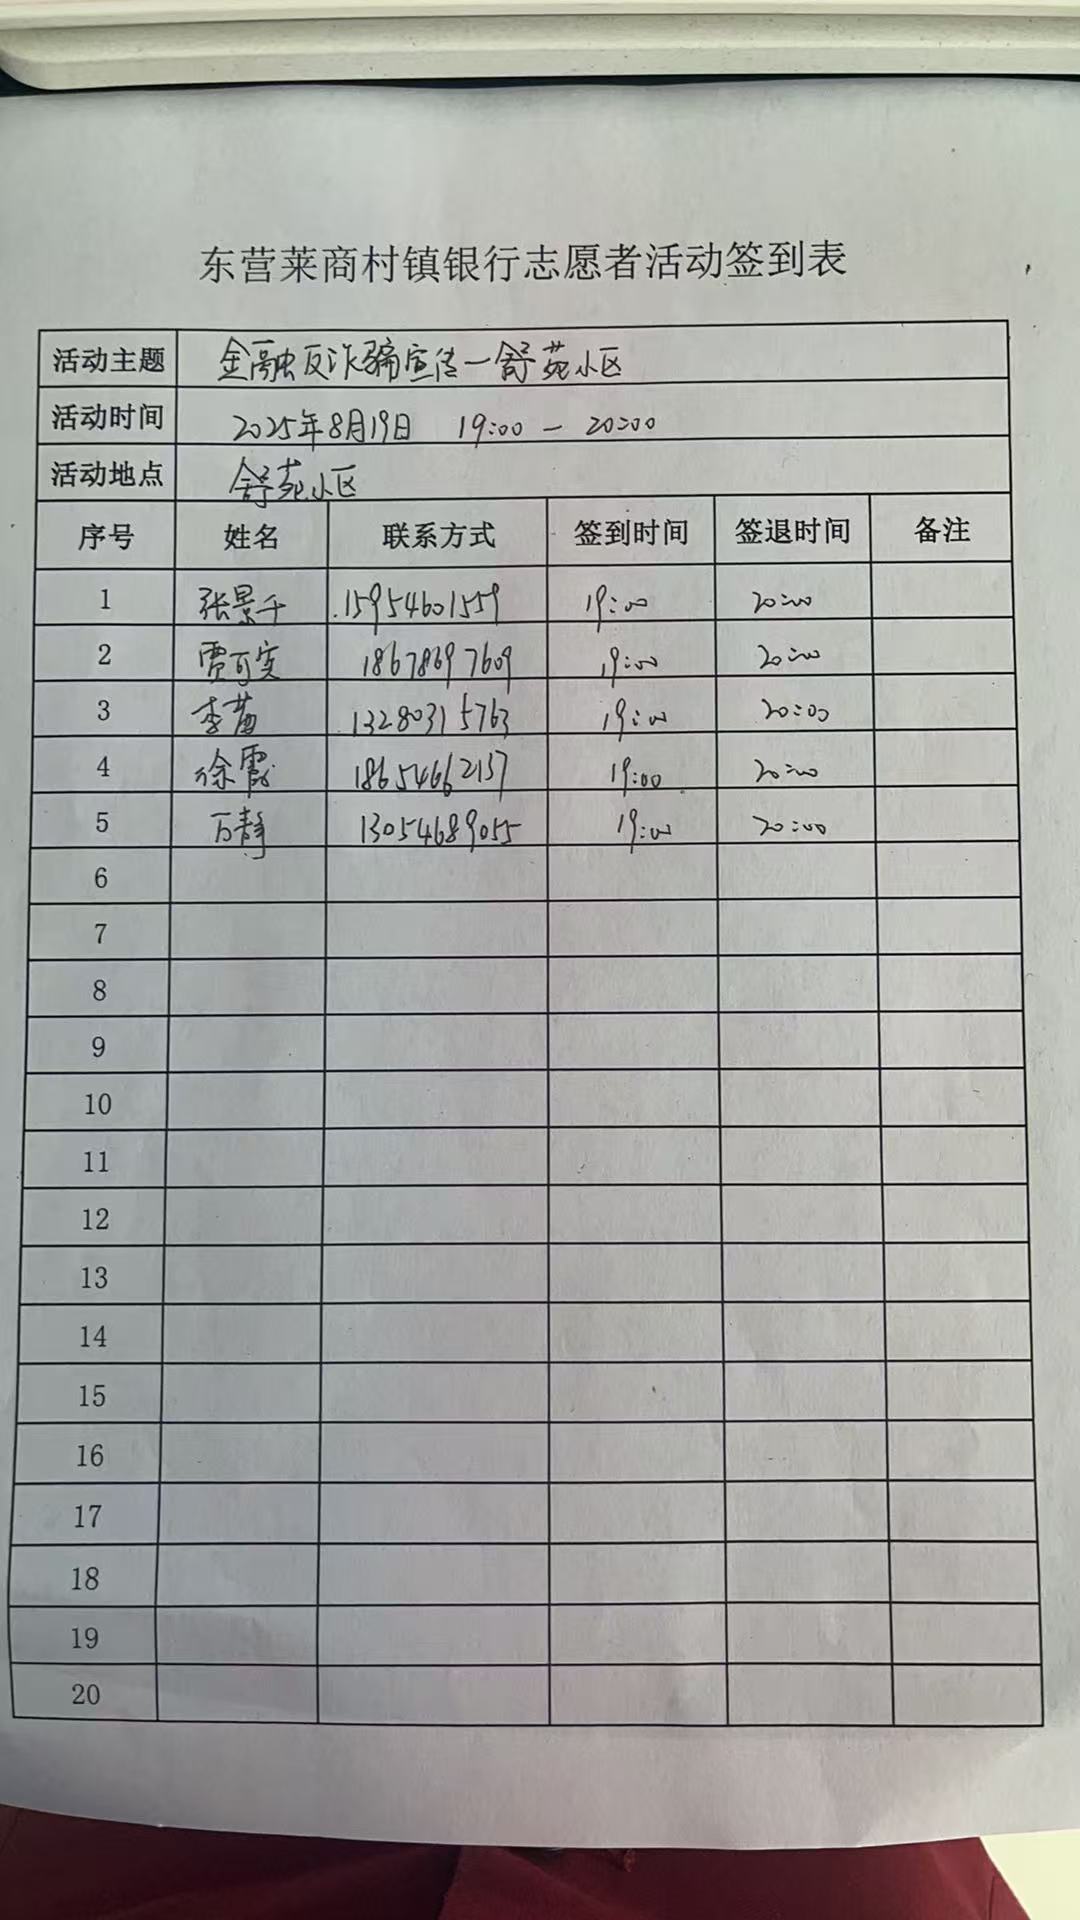 东营莱商村镇银行志愿者活动签到表
活动主题 金融反诈骗宣传—舒苑小区
活动时间 2025年8月19日 19:00 — 20:00
活动地点 舒苑小区
序号 姓名 联系方式 签到时间 签退时间 备注
1 张景千 15954601559 19:00 20:00
2 贾可安 18678697609 19:00 20:00
3 李茜 13280315763 19:00 20:00
4 徐霞 18654662137 19:00 20:00
5 万静 13054689055 19:00 20:00
6
7
8
9
10
11
12
13
14
15
16
17
18
19
20